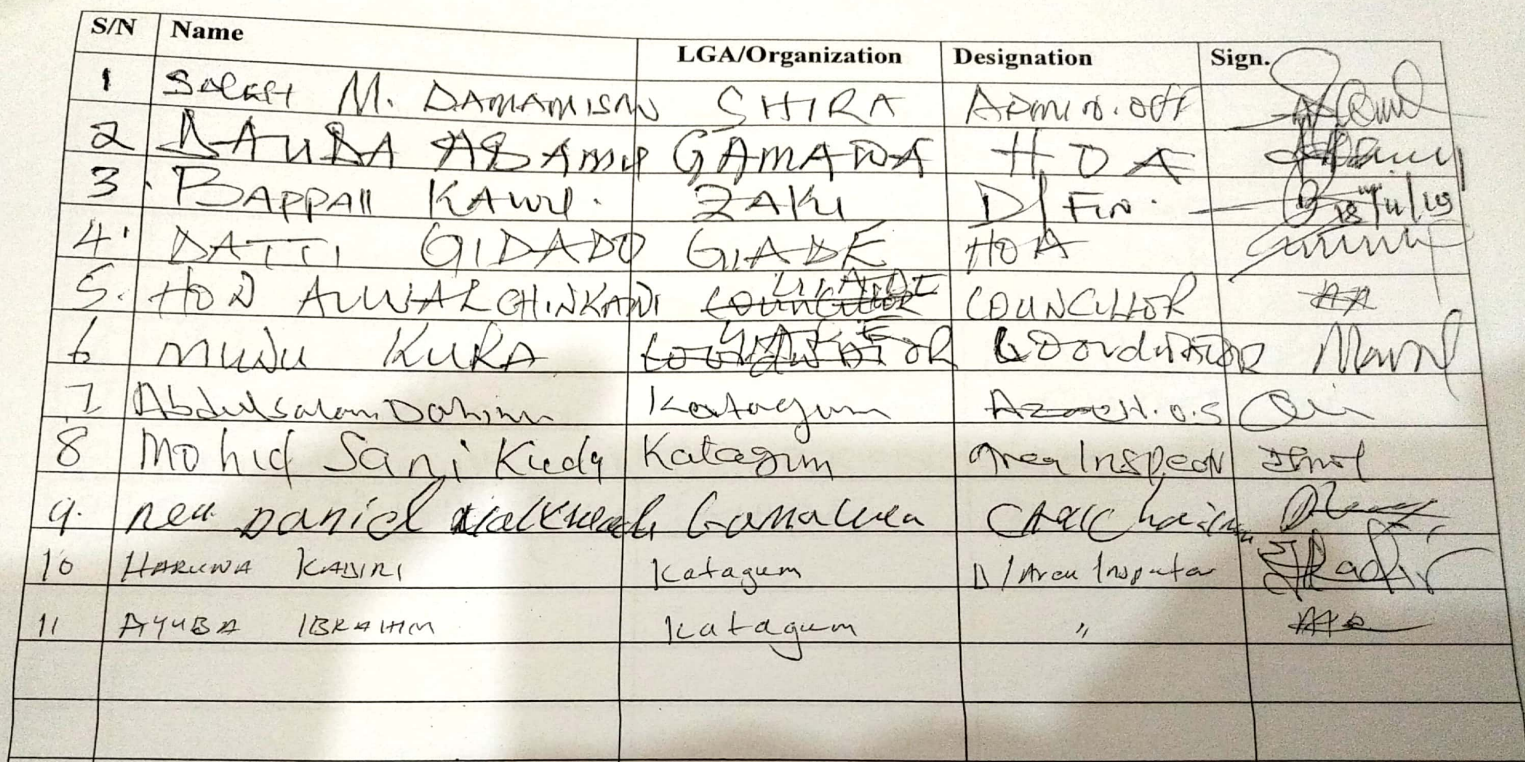 S/N Name LGA/Organization Designation Sign.
1 Saleh M. DAMAMISAU SHIRA Admin. off
2 DAUDA ADAMU GAMAWA HOA
3. BAPPAH KAWU. ZAKI D/Fin. 18/11/19
4. DATTI GIDADO GIADE HOA
5. HON AUWAL CHINKANI COUNCILLOR
6 KURA COORDINATOR
7 Abdulsalam Dahiru Katagum H.O.S
8 Mohd Sani Katagum Area Inspector
9. Daniel Gamawa Chairman
10 HARUNA KADIRI Katagum D/Area Inspector
11 AYUBA IBRAHIM Katagum "